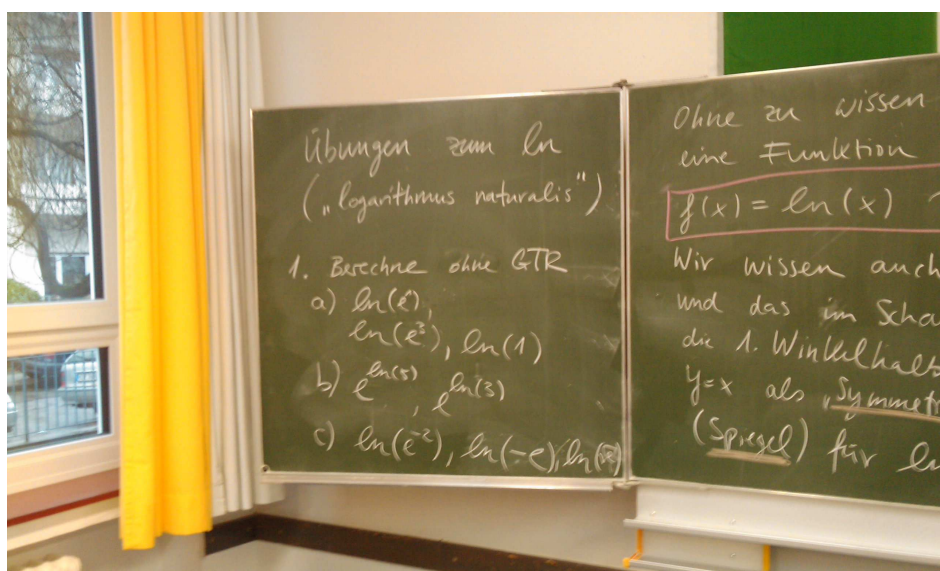 Übungen zum ln
(„logarithmus naturalis")
1. Berechne ohne GTR
a) ln(e),
ln(e³), ln(1)
b) e^ln(5), e^ln(3)
c) ln(e⁻²), ln(-e), ln(
Ohne zu wissen
eine Funktion
f(x) = ln(x)
Wir wissen auch
und das im Scha
die 1. Winkelhalb
y=x als „Symmetr
(Spiegel) für ln